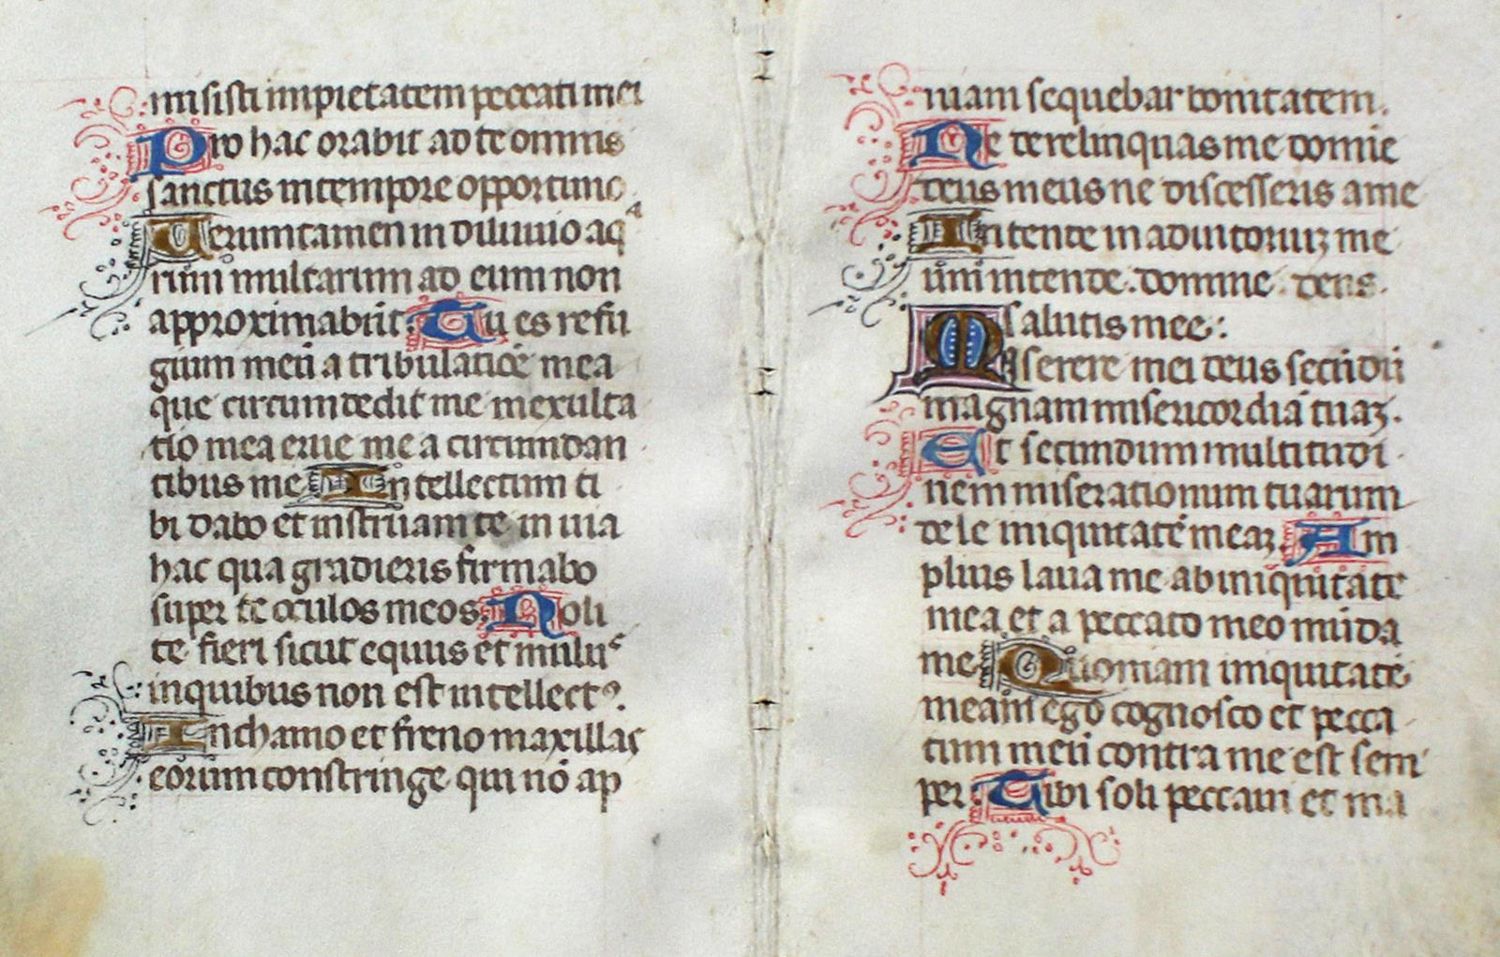 misisti impietatem peccati mei
Pro hac orabit ad te omnis
sanctus in tempore opportuno
Uerumtamen in diluuio aqᵃ
rum multarum ad eum non
approximabūt. Tu es refu
gium meū a tribulatiōe mea
que circumdedit me mexulta
tio mea erue me a circumdan
tibus me Intellectum ti
bi dabo et instruam te in uia
hac qua gradieris firmabo
super te oculos meos. Noli
te fieri sicut equus et mulus
in quibus non est intellectꝰ.
In chamo et freno maxillas
eorum constringe qui nō ap
niam sequebar bonitatem.
Ne derelinquas me domine
deus meus ne discesseris a me
Intende in adiutoriuꝫ me
um intende. domine. deus.
salutis mee:
Miserere mei deus secūdū
magnam misericordiā tuaꝫ.
Et secundum multitudi
nem miserationum tuarum
dele iniquitatē meaꝫ. Am
plius laua me ab iniquitate
mea et a peccato meo mūda
me Quoniam iniquitatē
meam ego cognosco et pecca
tum meū contra me est sem
per. Tibi soli peccaui et ma